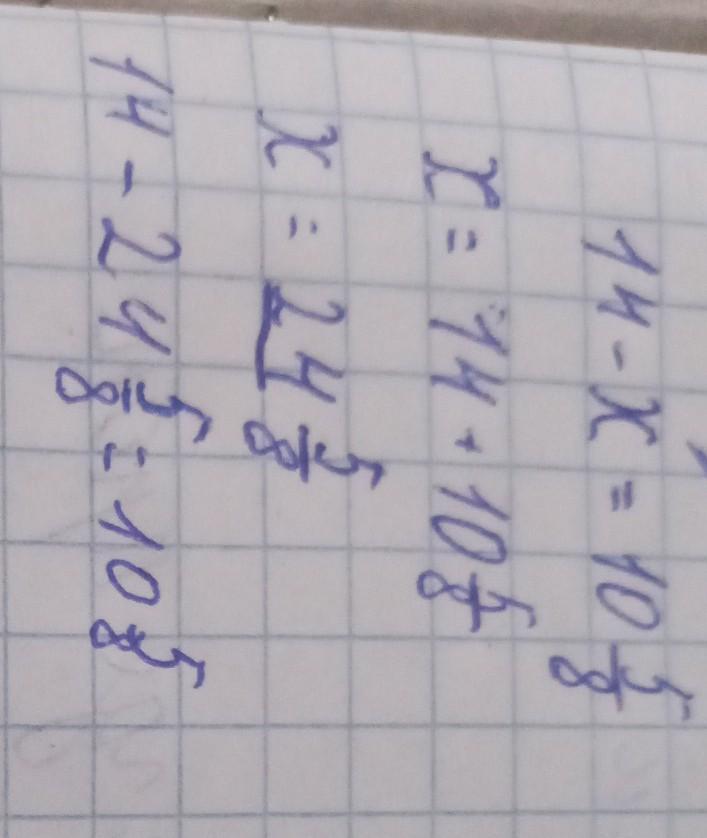 14 - x = 10 5/8
x = 14 + 10 5/8
x = 24 5/8
14 - 24 5/8 = 10 5/8